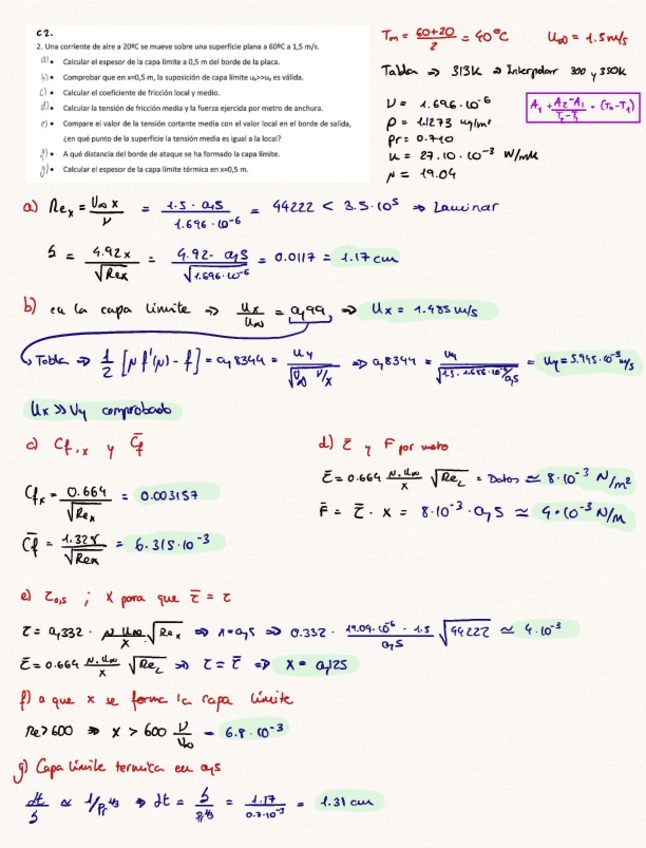 C2.
2. Una corriente de aire a 20ºC se mueve sobre una superficie plana a 60ºC a 1,5 m/s.
a) • Calcular el espesor de la capa límite a 0,5 m del borde de la placa.
b) • Comprobar que en x=0,5 m, la suposición de capa límite uₓ>>uᵧ es válida.
c) • Calcular el coeficiente de fricción local y medio.
d) • Calcular la tensión de fricción media y la fuerza ejercida por metro de anchura.
e) • Compare el valor de la tensión cortante media con el valor local en el borde de salida,
¿en qué punto de la superficie la tensión media es igual a la local?
f) • A qué distancia del borde de ataque se ha formado la capa límite.
g) • Calcular el espesor de la capa límite térmica en x=0,5 m.
Tm = (60+20)/2 = 40ºC U∞ = 1.5 m/s
Tabla ⇒ 313K ⇒ Interpolar 300 y 350K
ν = 1.696·10⁻⁶
ρ = 1.1273 kg/m³
Pr = 0.710
k = 27.10·10⁻³ W/mK
μ = 19.04
A₁ + (A₂-A₁)/(T₂-T₁) · (T₀-T₁)
a) Reₓ = U∞ x/ν = 1.5 · 0,5/1.696·10⁻⁶ = 44222 < 3.5·10⁵ ⇒ Laminar
δ = 4.92x/√Reₓ = 4.92 · 0,5/√1.696·10⁻⁶ = 0.0117 = 1.17 cm
b) en la capa límite ⇒ uₓ/u∞ = 0,99 ⇒ Uₓ = 1.485 m/s
Tabla ⇒ 1/2 [η f'(η) - f] = 0,8344 = uᵧ/√(U∞ ν/x) ⇒ 0,8344 = uᵧ/√(1.5 · 1.696·10⁻⁶/0,5) = Uᵧ = 5.945·10⁻³ m/s
Uₓ >> Vᵧ comprobado
c) Cf,x y C̄f
Cfₓ = 0.664/√Reₓ = 0.003157
C̄f = 1.328/√Reₓ = 6.315·10⁻³
d) τ̄ y F por metro
τ̄ = 0.664 μ·u∞/x √Re_L = Datos ≃ 8·10⁻³ N/m²
F̄ = τ̄ · x = 8·10⁻³ · 0,5 ≃ 4·10⁻³ N/m
e) τ₀,₅ ; x para que τ̄ = τ
τ = 0,332 · μ u∞/x √Reₓ ⇒ x=0,5 ⇒ 0.332 · 19.04·10⁻⁶ · 1.5/0,5 √44222 ≃ 4·10⁻³
τ̄ = 0.664 μ·u∞/x √Re_L ⇒ τ = τ̄ ⇒ x = 0,125
f) a que x se forma la capa límite
Re>600 ⇒ x > 600 ν/U∞ = 6.8·10⁻³
g) Capa límite termica en 0,5
δt/δ ≃ 1/Pr^1/3 ⇒ δt = δ/Pr^1/3 = 1.17/0.7·10⁻³ = 1.31 cm